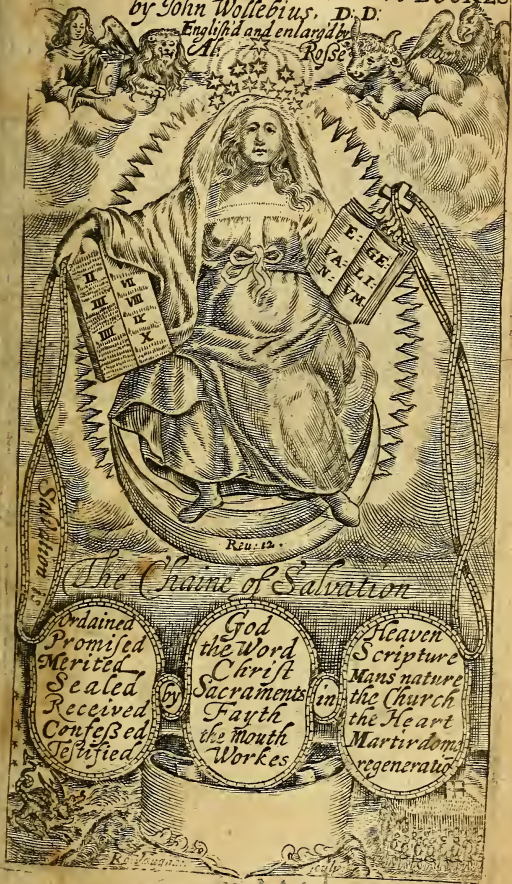 BOOKES
by John Wollebius. D: D:
English'd and enlarg'd by
Al: Rosse
II
III
IIII
VII
VIII
IX
X
E:
VA:
N:
GE
LI:
VM.
Rev: 12.
Salvation is
The Chaine of Salvation
Ordained
Promised
Merited
Sealed
Received
Confeßed
Testified
by
God
the Word
Christ
Sacraments
Fayth
the mouth
Workes
in
Heaven
Scripture
Mans nature
the Church
the Heart
Martirdome
regeneratiō
Ro: Vaughan
sculp